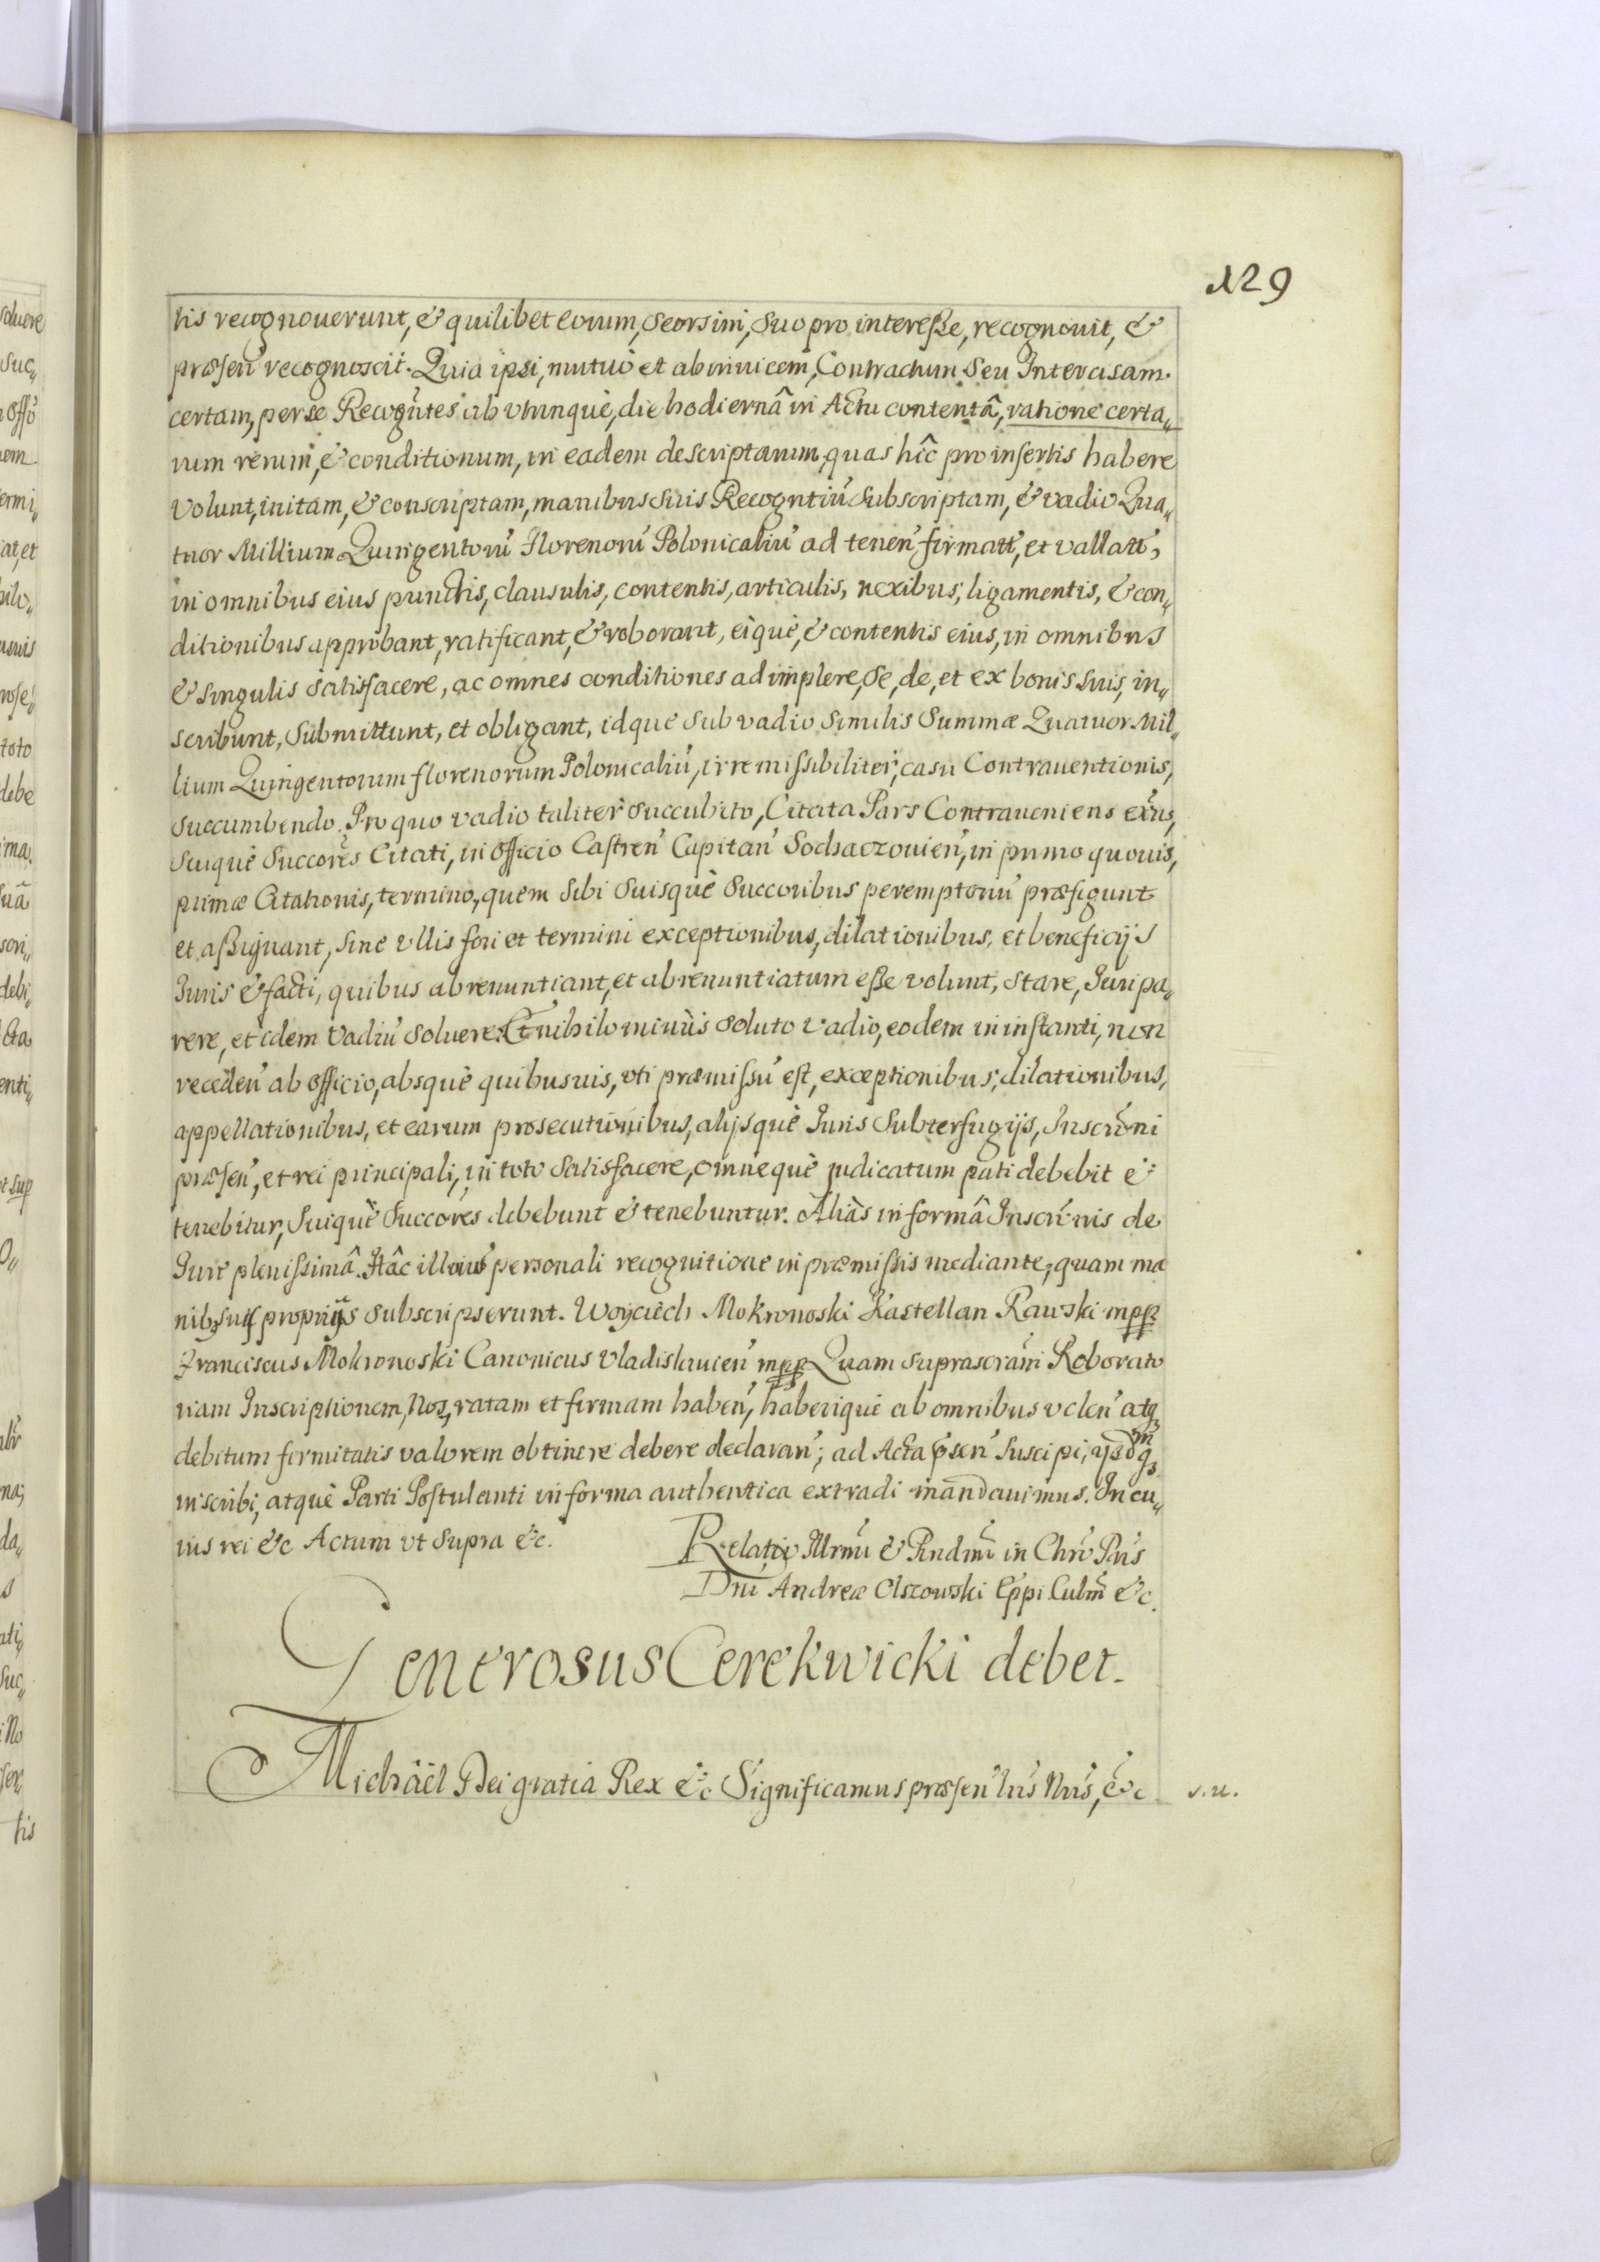 129
tis recognouerunt, & quilibet eorum, seorsim, suo pro interesse, recognouit, &
præsen recognoscit. Quia ipsi, mutuò et ab inuicem, Contractum Seu Intercisam
certam, per se Recogntes ab utrinque, die hodiernâ in Actu contentâ, ratione certa„
rum rerum, & conditionum, in eadem descriptarum, quas hîc pro insertis habere
volunt, initam, & conscriptam, manibus suis Recogntiũ subscriptam, & vadio Qua„
tuor Millium Quingentorũ Florenorũ Polonicaliũ ad tenen firmatt, et vallatt,
in omnibus eius punctis, clausulis, contentis, articulis, nexibus, ligamentis, & con„
ditionibus approbant, ratificant, & roborant, eique, & contentis eius, in omnibus
& singulis satisfacere, ac omnes conditiones adimplere, se, de, et ex bonis suis, in„
scribunt, submittunt, et obligant, idque sub vadio similis Summæ Quatuor Mil„
lium Quingentorum florenorum Polonicaliũ, irremissibiliter, casu Contrauentionis,
succumbendo. Pro quo vadio taliter succubito, Citata Pars Contraueniens exũs,
suique Succores Citati, in officio Castren Capitan Sochaczouien, in primo quouis,
primæ Citationis, termino, quem sibi suisque Succoribus peremptoriũ præfigunt
et assignant, sine ullis fori et termini exceptionibus, dilationibus, et beneficijs
Juris & facti, quibus abrenuntiant, et abrenuntiatum esse volunt, stare, Juri pa„
rere, et idem vadiũ soluere. Et nihilominùs soluto vadio, eodem in instanti, non
receden ab officio, absque quibusuis, uti præmissũ est, exceptionibus, dilationibus,
appellationibus, et earum prosecutionibus, alijsque Juris Subterfugijs, Inscrũni
præsen, et rei principali, in toto satisfacere, omneque judicatum pati debebit &
tenebitur, suique Succores debebunt & tenebuntur. Aliàs in formâ Inscrũnis de
Jure plenissimâ. Hâc illorũ personali recognitione in præmissis mediante, quam ma
nibʒ suis proprijs subscripserunt. Woyciech Mokronoski Kastellan Rawski mpp
Franciscus Mokronoski Canonicus Vladislauien mpp Quam suprascrãm Roborato
riam Inscriptionem, Nos, ratam et firmam haben, haberique ab omnibus uolen atqʒ
debitum firmitatis valorem obtinere debere declaran; ad Acta psen suscipi, ijsdmqʒ
inscribi, atque Parti Postulanti in forma authentica extradi mandauimus. In cu„
ius rei &c Actum ut supra &c.
Relatio Illrmi & Rndmi in Chro Pris
Dni Andreæ Olszowski Eppi Culm &c.
Generosus Cerekwicki debet.
Michäel Dei gratia Rex &c Significamus præsen lris Nris, &c s. u.